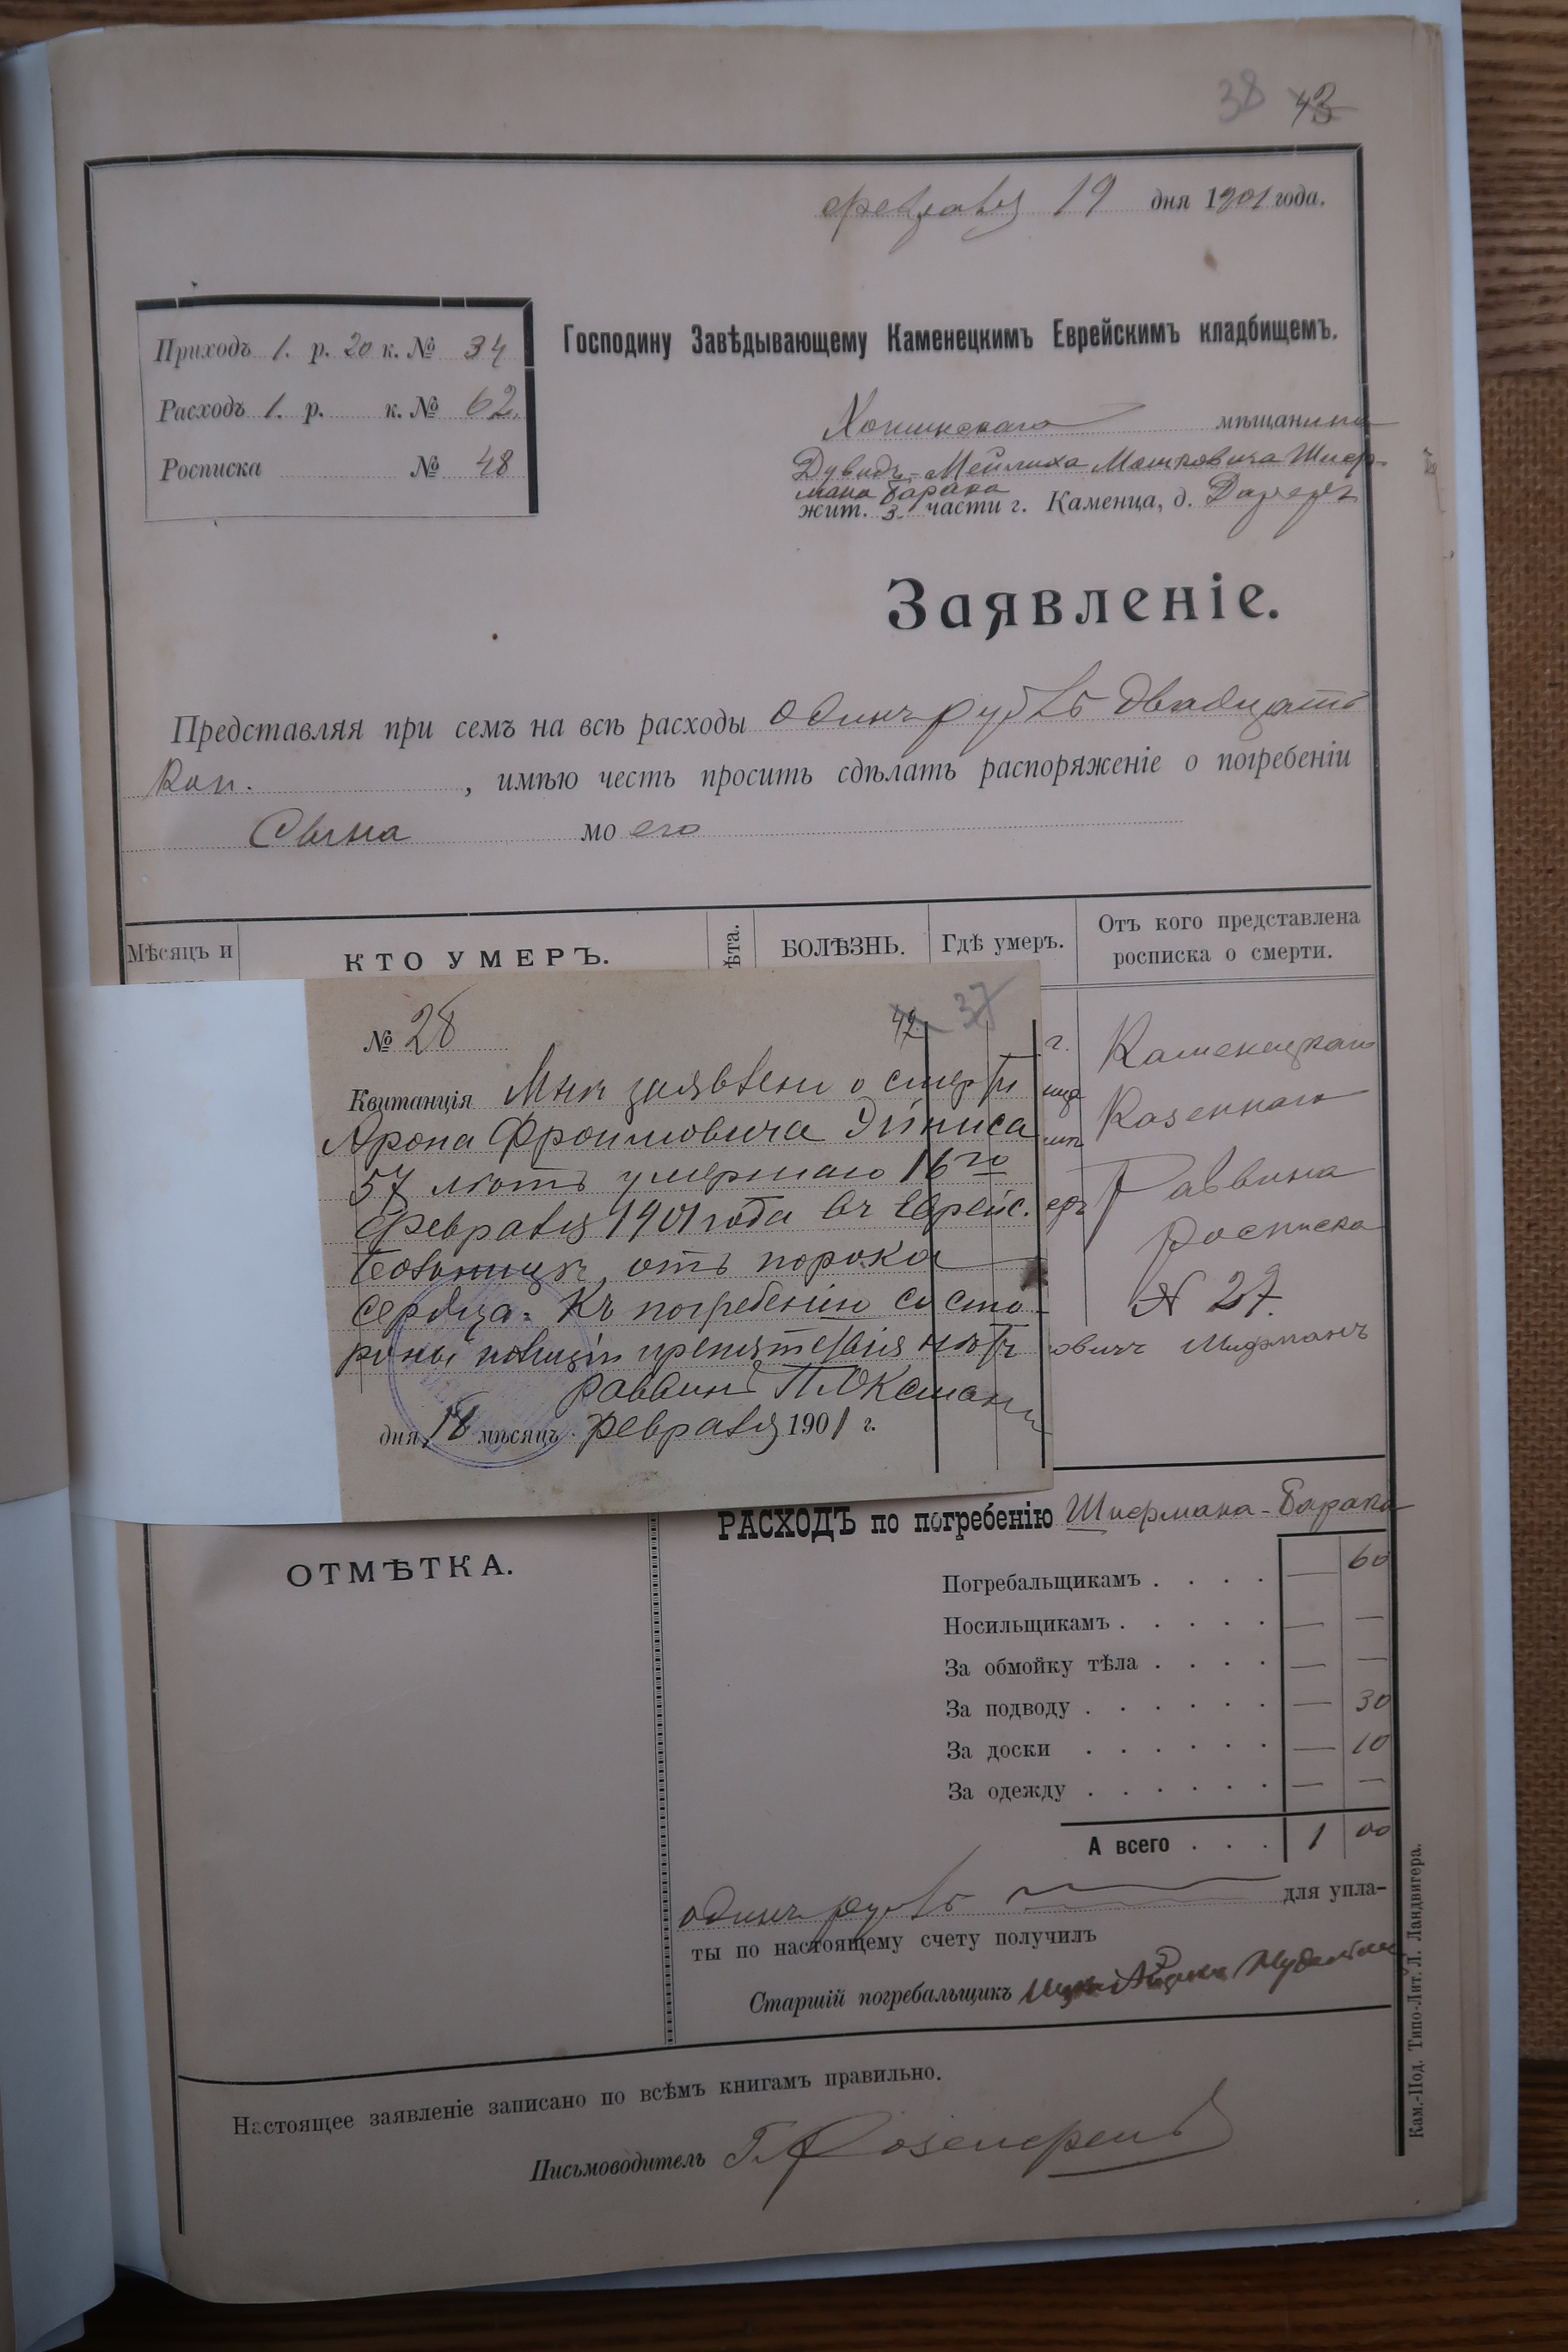 38 43
февраля 19 дня 1901 года.
Приходъ 1. р. 20 к. № 34
Расходъ 1. р. к. № 62.
Росписка № 48
Господину Завѣдывающему Каменецкимъ Еврейскимъ кладбищемъ.
мѣщанина
Дувидъ-Мейлиха Мошковича Шпер-
мана Барака
жит. 3 части г. Каменца, д.
Заявленіе.
Представляя при семъ на всѣ расходы одинъ рубль двадцать
коп. , имѣю честь просить сдѣлать распоряженіе о погребеніи
Сына моего
Мѣсяцъ и
КТО УМЕРЪ.
ѣта.
БОЛѢЗНЬ.
Гдѣ умеръ.
Отъ кого представлена
росписка о смерти.
Каменецкаго
Казеннаго
Раввина
росписка
№ 27.
№ 28
42 37
Квитанція Мнѣ заявлено о смерти
Арона Фроимовича Эйниса
57 лѣтъ умершаго 16го
февраля 1901 года въ Еврейс.
Больницѣ, отъ порока
сердца. Къ погребенію со сто-
роны полиціи препятствія нѣтъ
раввинъ
дня 18 мѣсяцъ февраля 1901 г.
РАСХОДЪ по погребенію Шпермана-Барака
ОТМѢТКА.
Погребальщикамъ . . . . — 60
Носильщикамъ . . . . . — —
За обмойку тѣла . . . . — —
За подводу . . . . . . — 30
За доски . . . . . . — 10
За одежду . . . . . . — —
А всего . . . 1 00
одинъ рубль для упла-
ты по настоящему счету получилъ
Старшій погребальщикъ
Настоящее заявленіе записано по всѣмъ книгамъ правильно.
Письмоводитель
Кам.-Под. Типо-Лит. Л. Ландвигера.